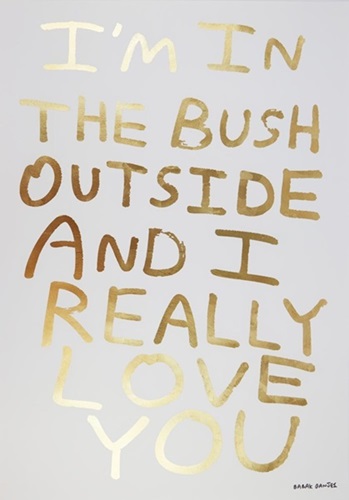 I'M IN
THE BUSH
OUTSIDE
AND I
REALLY
LOVE
YOU
BABAK GANJEI